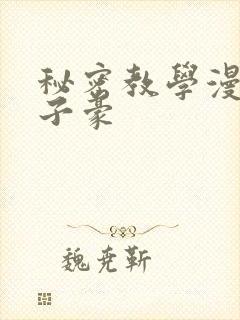 秘密教學漫
子豪
魏尭靳